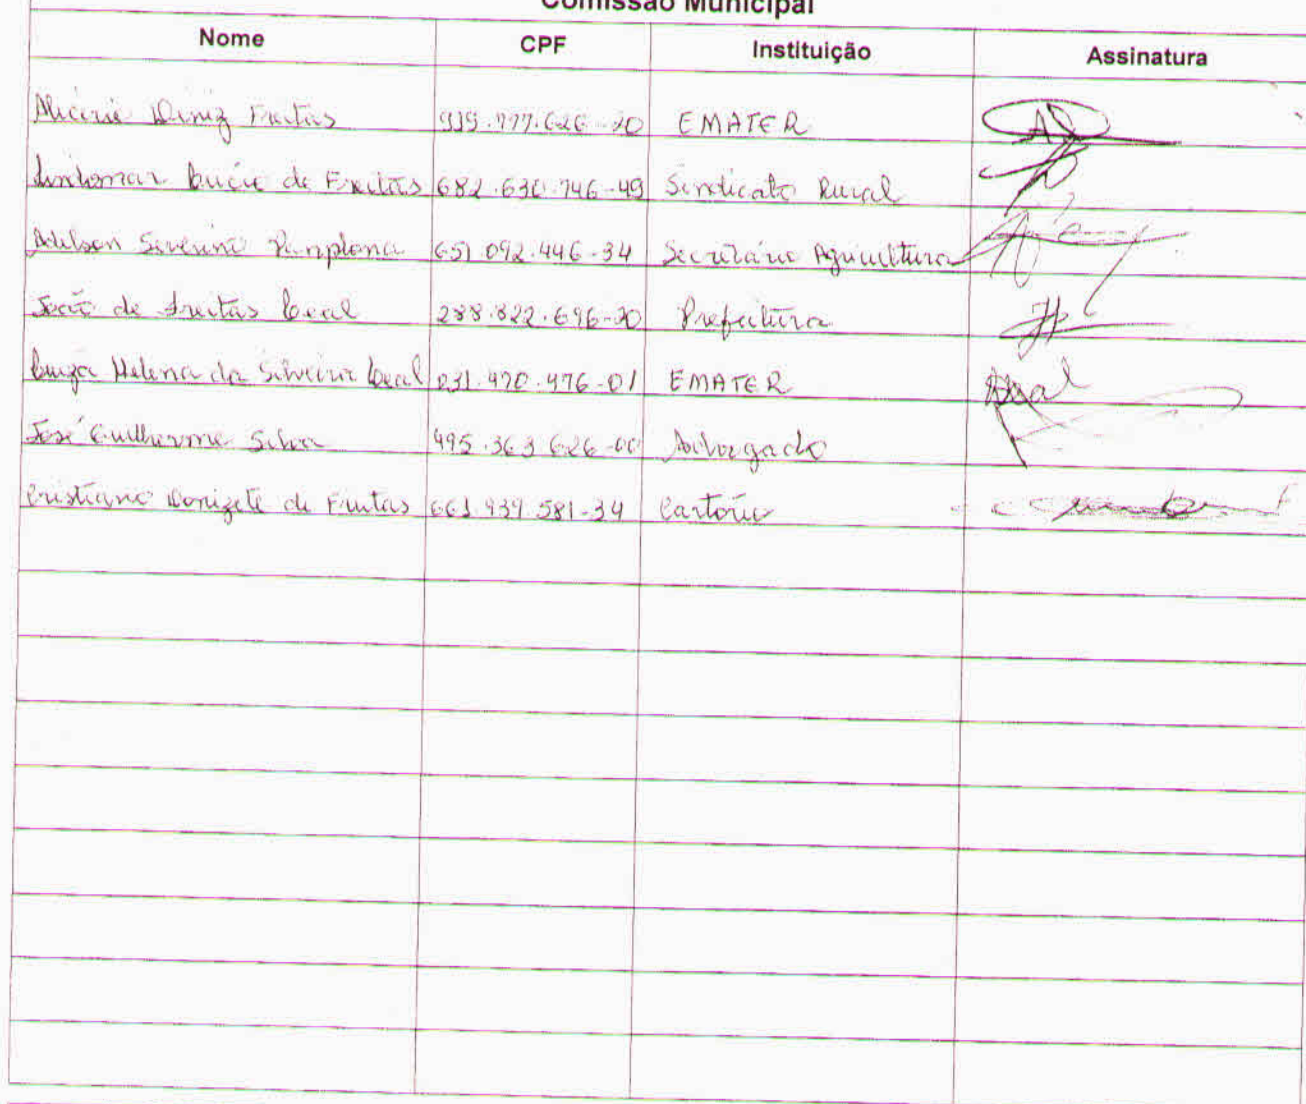 Comissão Municipal
Nome CPF Instituição Assinatura
Diniz Freitas EMATER
de Freitas 682.630.746-49 Sindicato Rural
Severino Pamplona 651.092.446-34 Secretário Agricultura
João de Freitas Leal 288.822.696-20 Prefeitura
Luiza Helena da Silveira Leal 031.470.476-01 EMATER
José Guilherme Silva Advogado
Cristiano Donizete de Freitas 661.939.581-34 Cartório